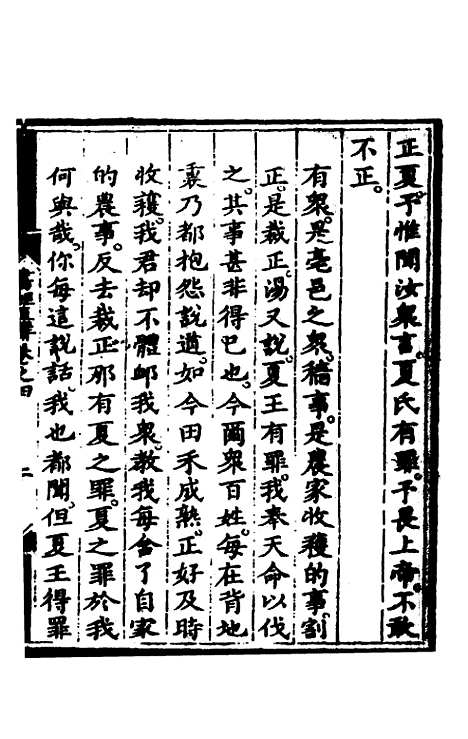 正夏予惟聞汝衆言夏氏有罪予畏上帝不敢
不正
有衆是亳邑之衆穡事是農家收穫的事割
正是裁正湯又說夏王有罪我奉天命以伐
之其事甚非得巳也今爾衆百姓每在背地
裏乃都抱怨說道如今田禾成熟正好及時
收穫我君却不體卹我衆教我每舍了自家
的農事反去裁正那有夏之罪夏之罪於我
何與哉你每這說話我也都聞但夏王得罪
書經直解卷之四 二